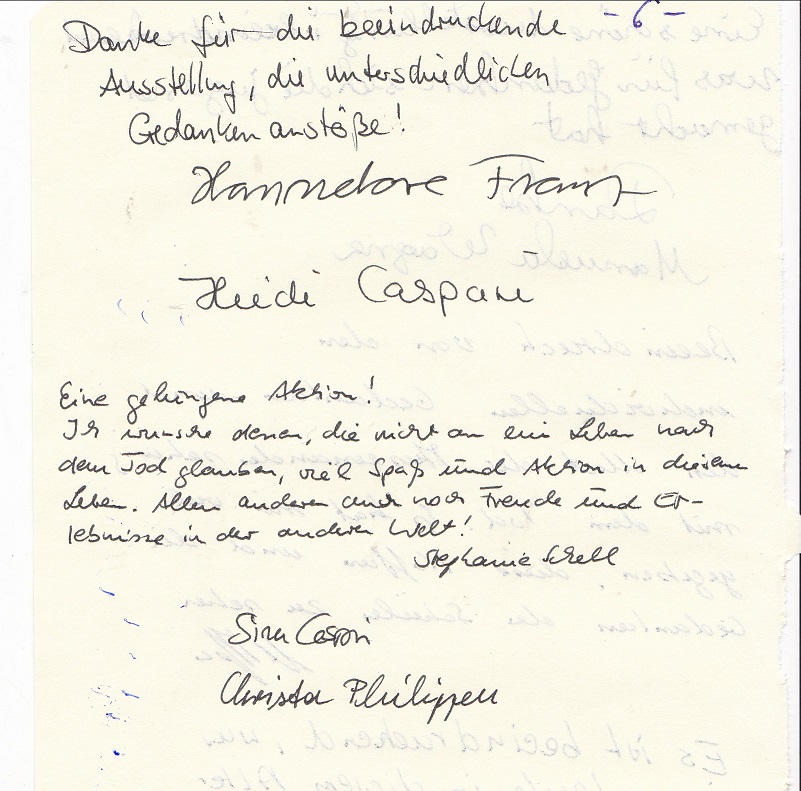 - 6 -
Danke für die beeindruckende
Ausstellung, die unterschiedlichen
Gedankenanstöße!
Hannelore Franz
Heidi Caspari
Eine gelungene Aktion!
Ich wünsche denen, die nicht an ein Leben nach
dem Tod glauben, viel Spaß und Aktion in diesem
Leben. Allen anderen auch noch Freude und Er-
lebnisse in der anderen Welt!
Stephanie Schell
Christa Philippen